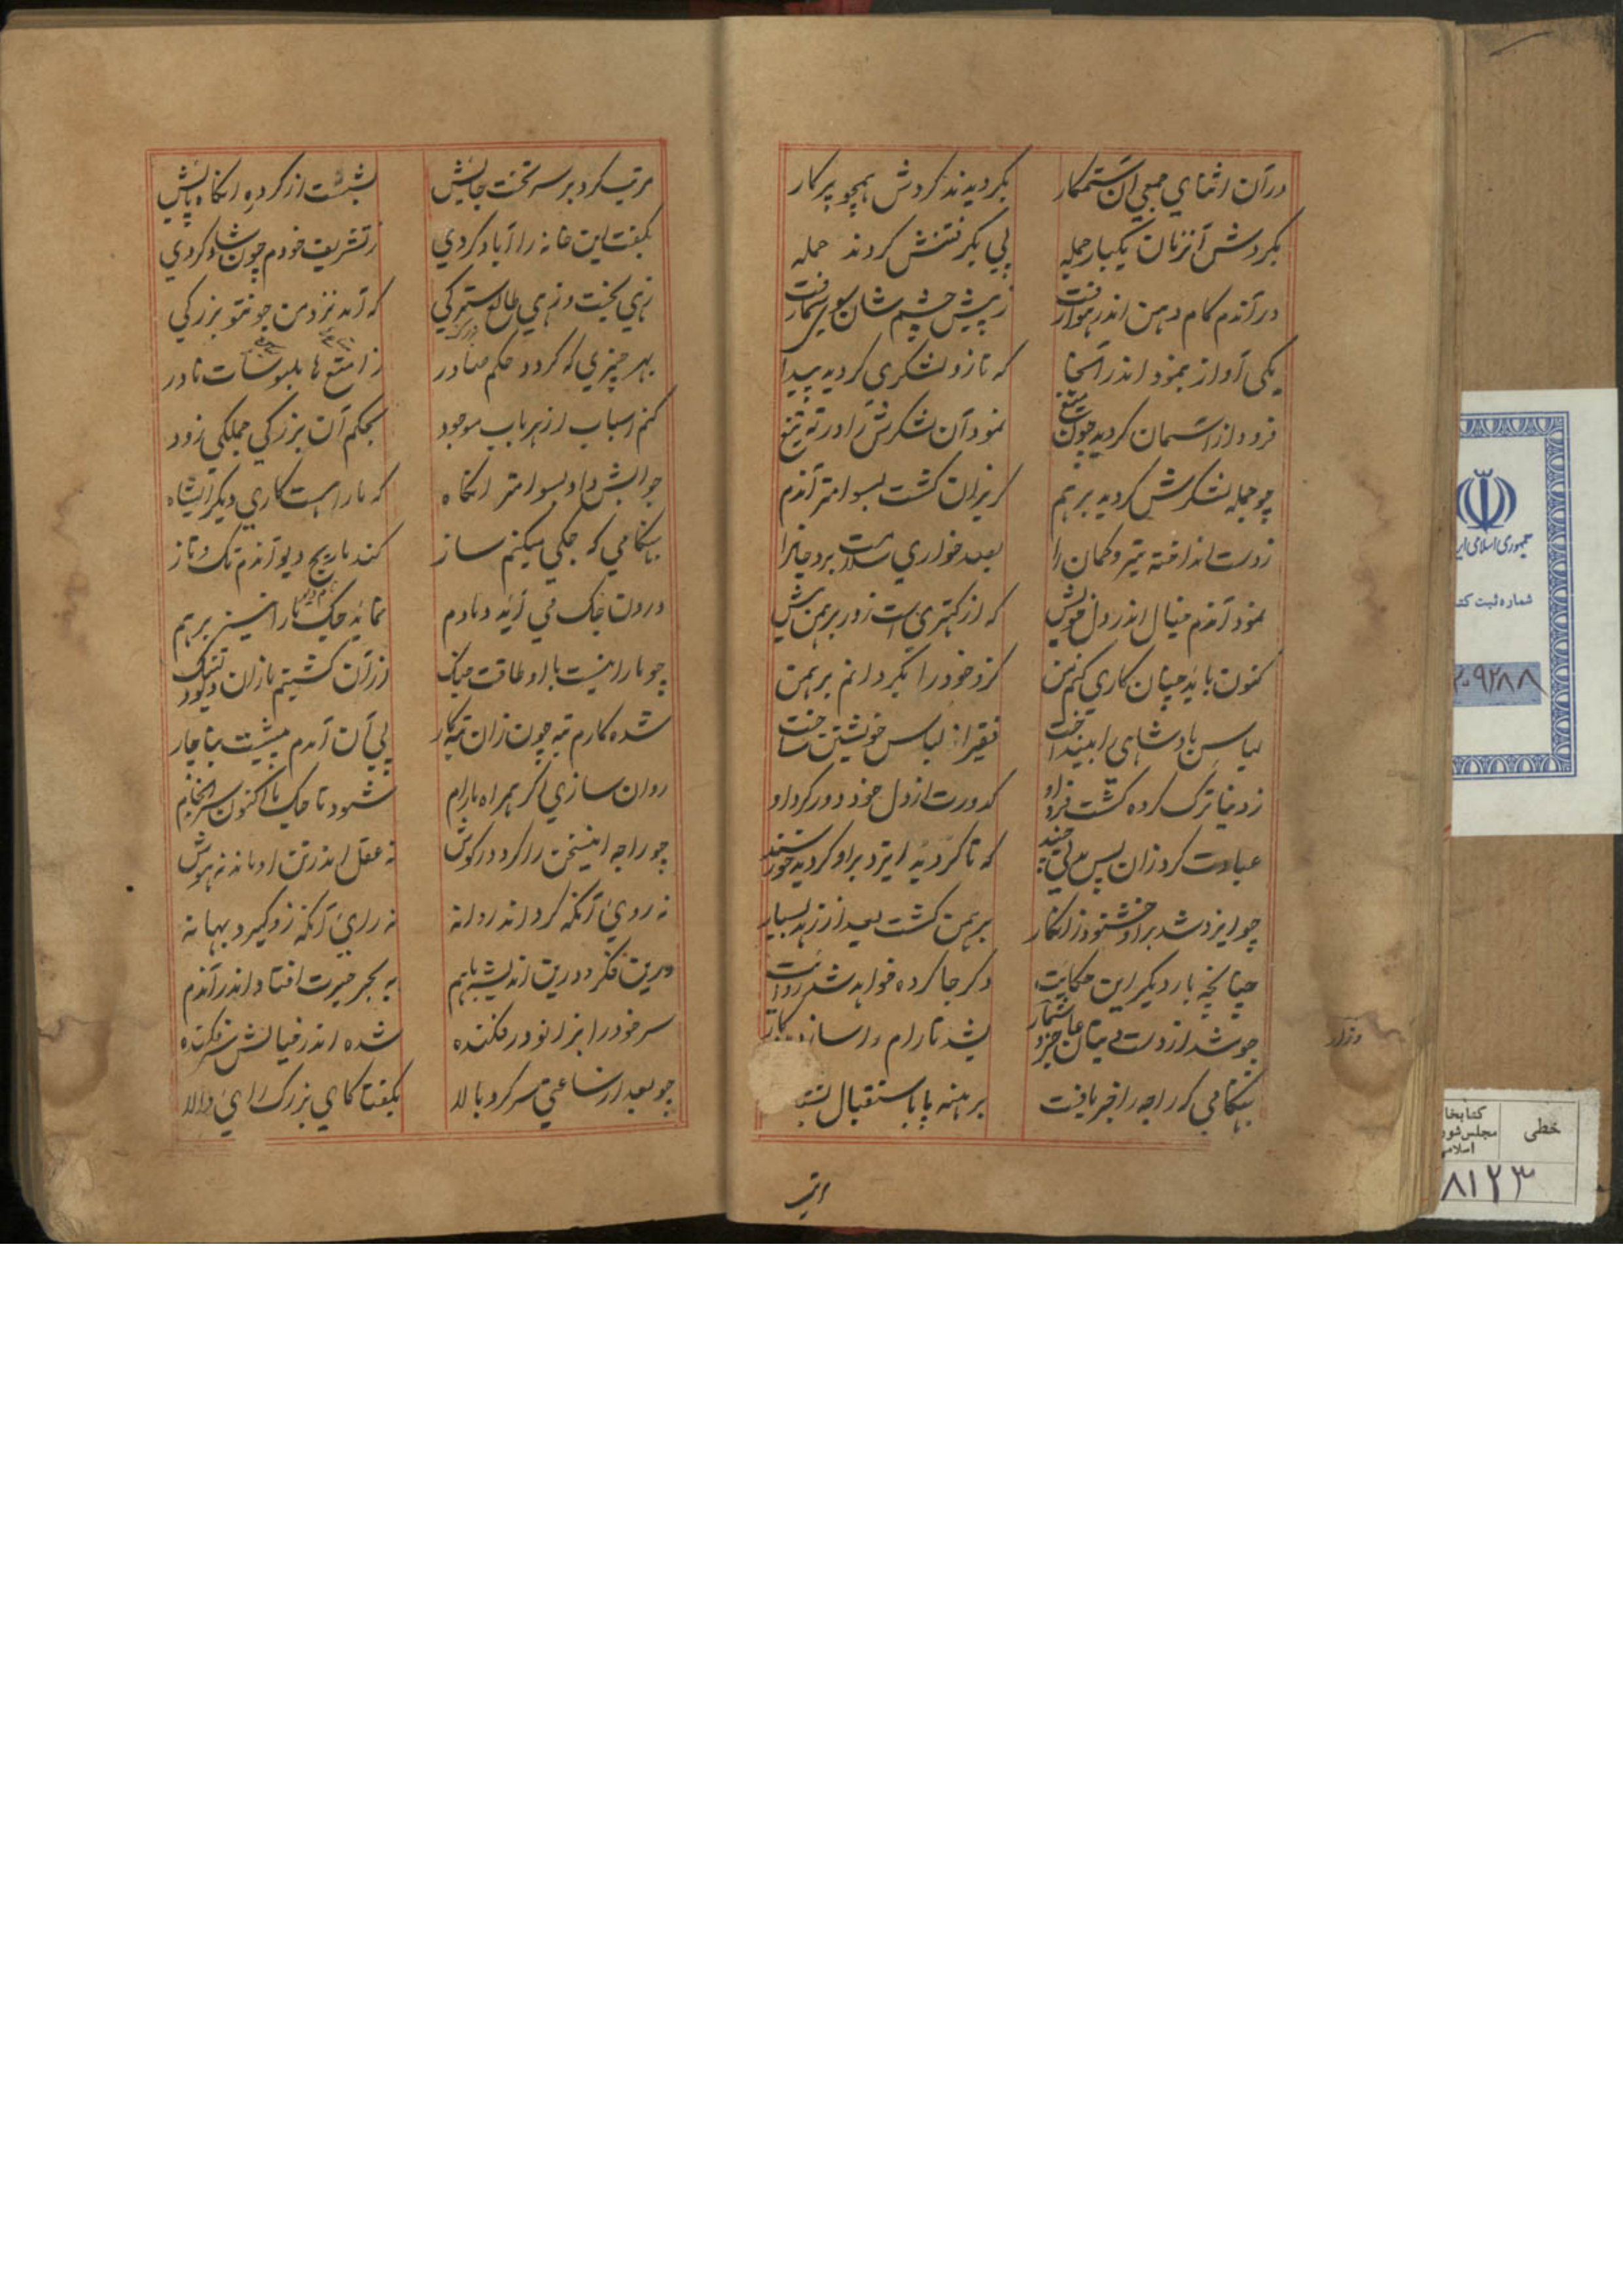 در آن اثنای جمعی آن ستمکار بگردیدند گردش همچو پرکار
بگردش آنزمان یکبار جمله پی بگرفتنش کردند حمله
درآندم کام دهن اندر هوا رفت ز پیش چشم شان سوی سما رفت
یکی آواز بنمود اندر آنجا که تازه لشکری گردیده پیدا
فرود از آسمان گردید چون میغ نمود آن لشکرش را در ته تیغ
چو جمله لشکرش گردید برهم گریزان گشت بسوامتر آندم
ز دست انداخته تیر و کمان را بصد خواری سلامت برد جانرا
نمود آندم خیال اندر دل خویش که از کهتری است زور برهمن بیش
کنون باید چنان کاری کنم من کزو خود را بگردانم برهمن
لباس پادشاهی را بینداخت فقیرانه لباس خویشتن ساخت
ز دنیا ترک کرده گشت فرد او کدورت از دل خود دور کرد او
عبادت کرد زان پس سالی چند که تا گردید ایزد بر او خورسند
چو ایزد شد بر او خشنود زانکار برهمن گشت بعد از زهد بسیار
چنانچه بار دیگر این حکایت دگر جا کرده خواهد شد روایت
چو شد از دست دیوان عاجز و
بشد تا رام را سازد
بهنگامی که راجه را خبر یافت برهنه پا باستقبال بشتافت
وزار
مرتب
مرتب کرد بر سر تخت جایش نشست از گرده آنگاه پایش
بگفت این خانه را آباد کردی ز تشریف خودم چون شاد کردی
زهی بخت و زهی طالع سترکی که آمد نزد من چونتو بزرگی
بهر چیزی که گردد حکم صادر ز امتعها ملبوسات نادر
کنم اسباب از هر باب موجود بحکم آن بزرگی جملگی زود
جوابش داد بسوامتر آنگاه که ما را هست کاری دیگر ای شاه
بهنگامی که جگی میکنم ساز کند ماریچ دیو آندم تک و تاز
درون جگ می آید دمادم نماید جگ ما را نیز برهم
چو ما را نیست با او طاقت جنگ از آن گشتیم زان دیو دلتنگ
شده کارم تبه چون زان تبه کار پی آن آمدم پیشت بناچار
روان سازی اگر همراه ما رام شود تا جگ ما اکنون سرانجام
چو راجه این سخن را کرد در گوش نه عقل اندر تن او ماند نه هوش
نه روی آنکه کرد اند روانه نه رای آنکه زو گیرد بهانه
درین فکر و درین اندیشه باهم به بحر حیرت افتاد اندر آندم
سر خود را بزانو در فکنده شده اندر خیالش سر فکنده
چو بعد از ساعتی سر کرد بالا بگفتا کای بزرگ رای والا
جمهوری اسلامی ایر
شماره ثبت کتا
۲۰۹۲۸۸
خطی
کتابخا
مجلس شور
اسلامی
۸۱۲۳